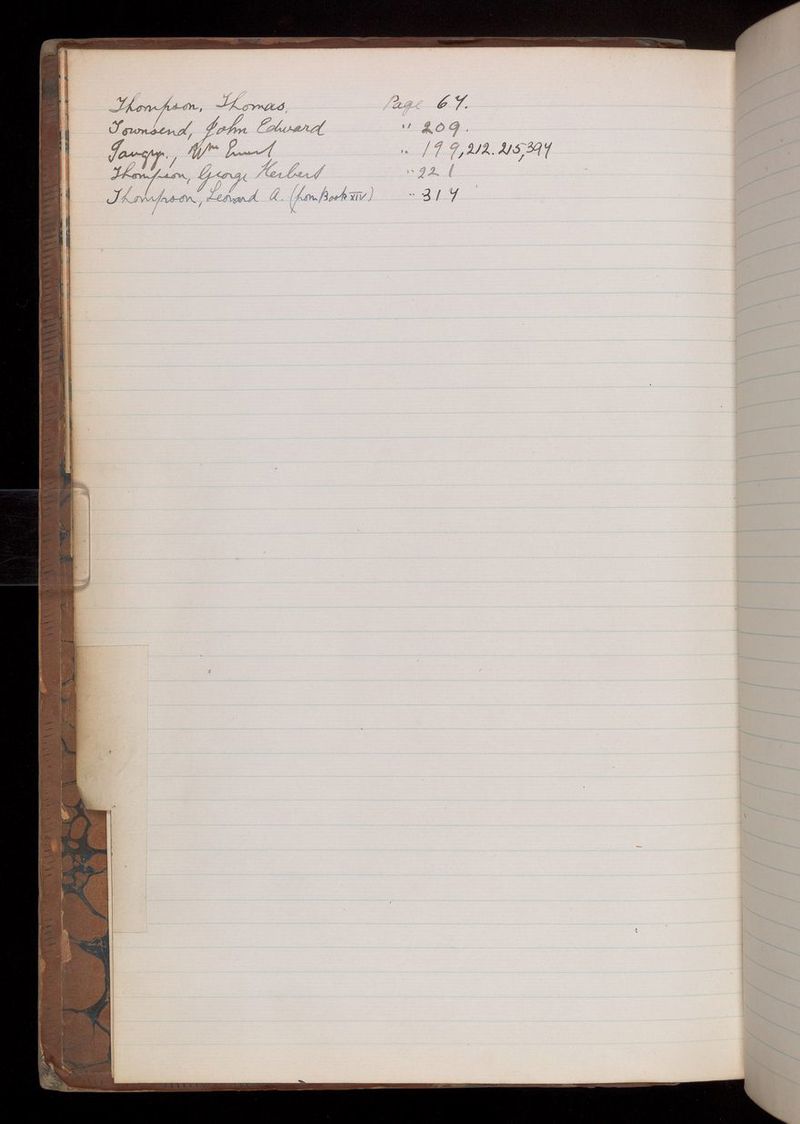 Thompson, Thomas. Page 67.
Townsend, John Edward " 209.
Wm Ernest " 199, 212. 215, 394
Thompson, George Herbert " 221
Thompson, Leonard A. (from Book XIV) " 314